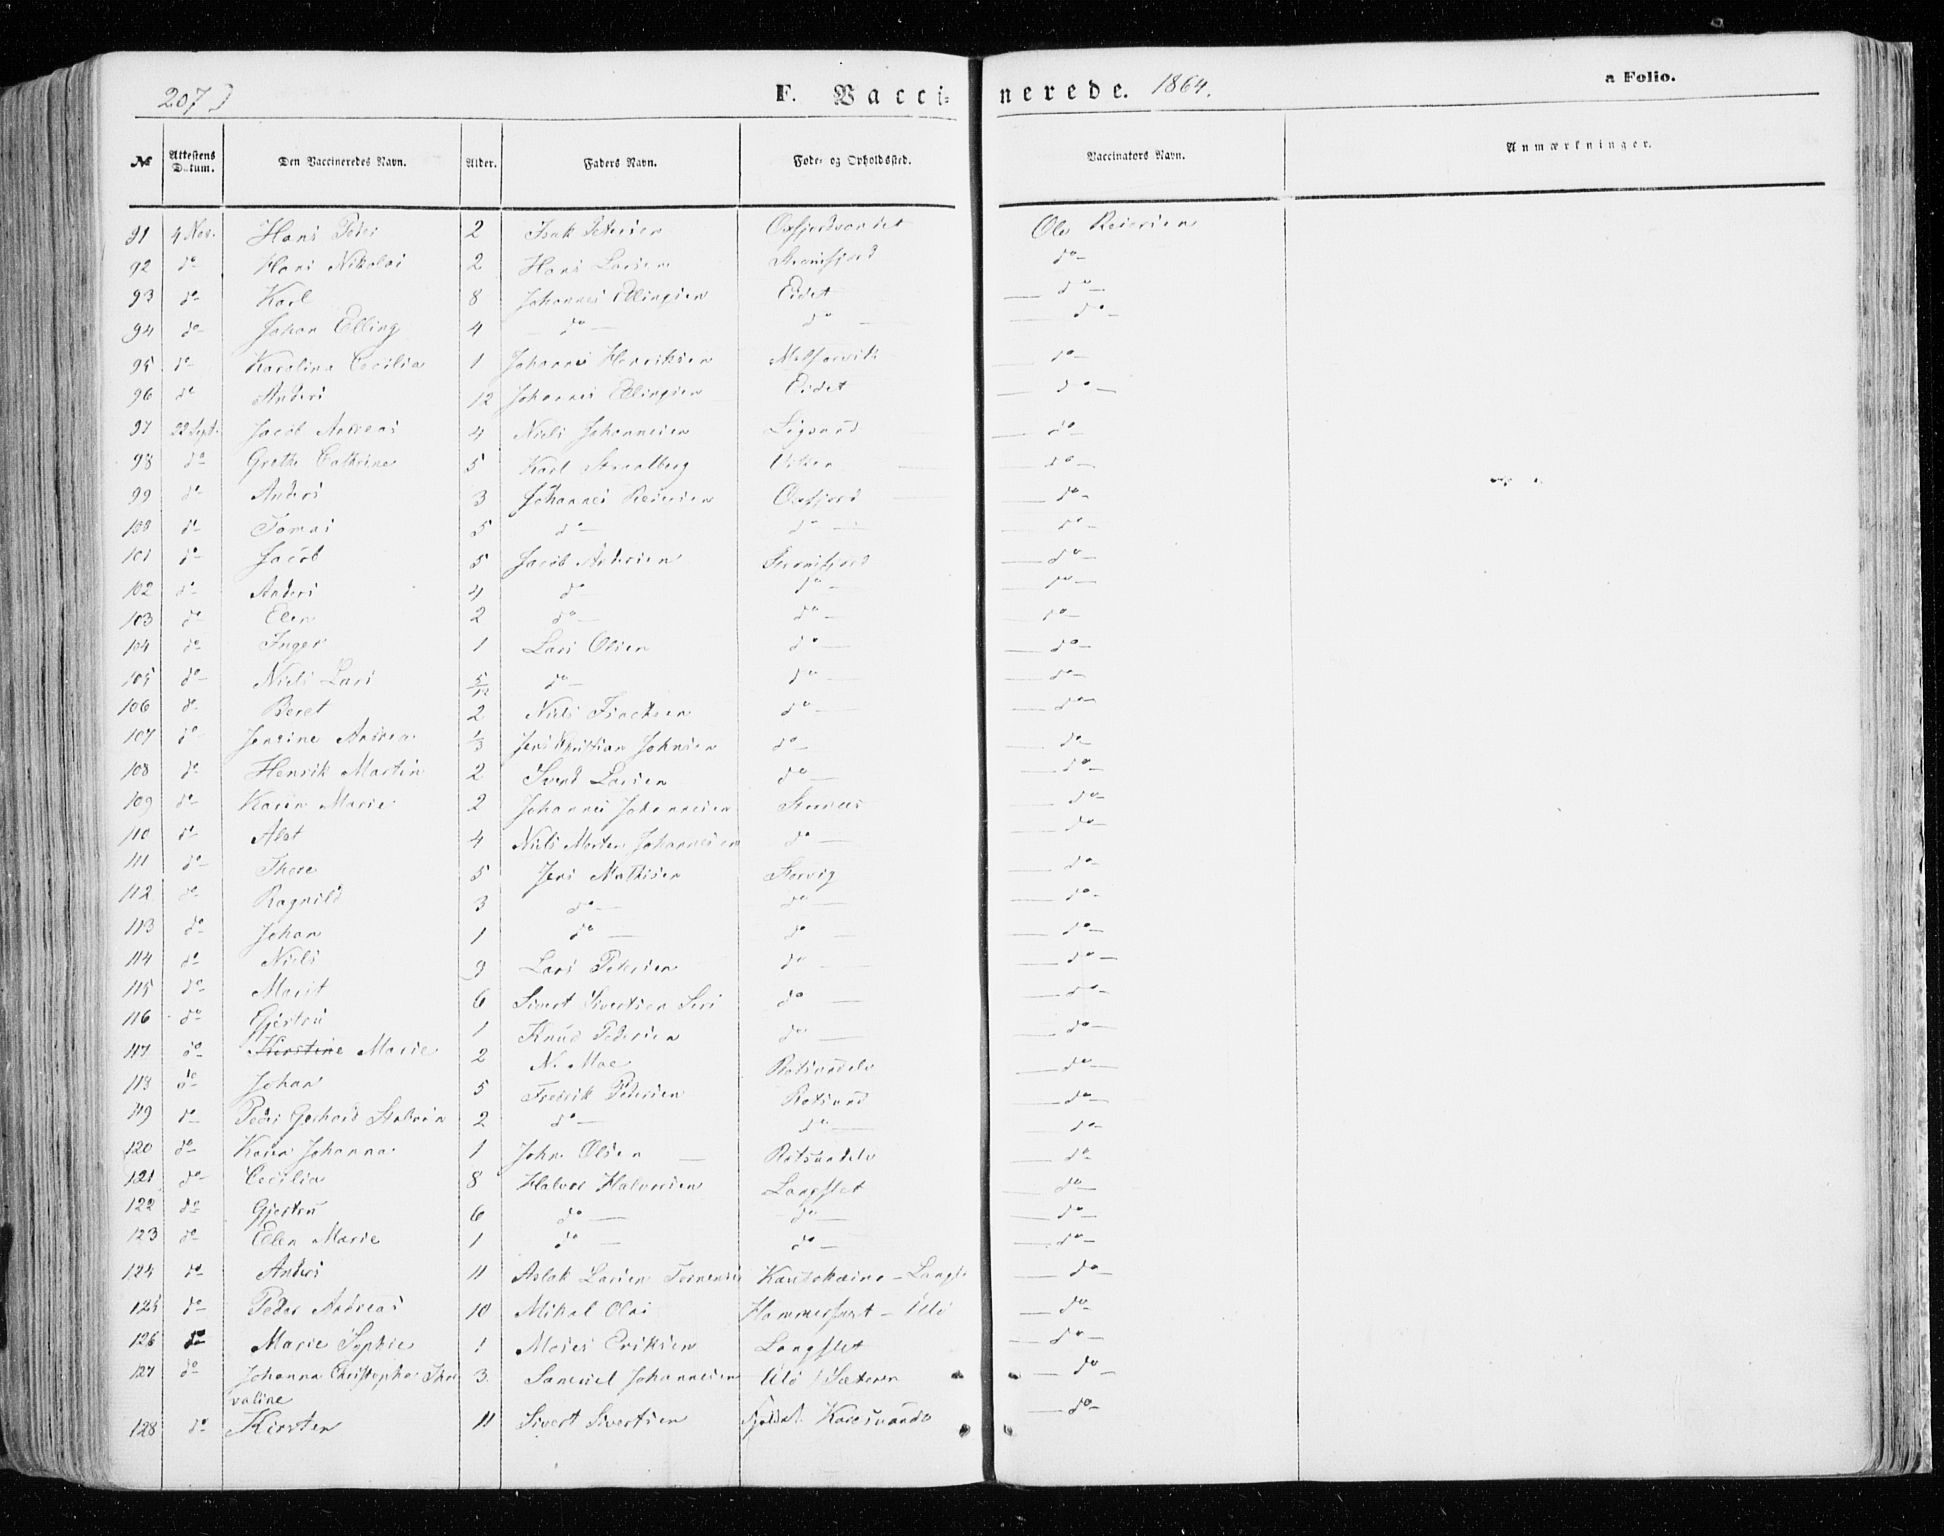 207 F. Vacci- nerede. 1864. a Folio.
№ Attestens Datum. Den Vaccineredes Navn. Alder. Faders Navn. Føde- og Opholdssted. Vaccinators Navn. Anmærkninger.
91 4 Nov. Hans Peder 2 Isak Petersen Oxfjordvandet Ole Reiersen
92 do Hans Nikolai 2 Hans Larsen Straumfjord do
93 do Karl 8 Johannes Ellingsen Eidet do
94 do Johan Elling 4 do do do
95 do Karolina Cecilia 1 Johannes Henriksen do
96 do Anders 12 Johannes Ellingsen Eidet do
97 22 Sept. Jacob Andreas 4 Niels Johannesen do
98 do Grethe Cathrine 5 Karl Straalberg Viken do
99 do Anders 3 Johannes Reiersen Oxfjord do
100 do Tomas 5 do do do
101 do Jacob 5 Jacob Andersen Straumfjord do
102 do Anders 4 do do do
103 do Elen 2 do do do
104 do Inger 1 Lars Olsen do do
105 do Niels Lars 5/12 do do do
106 do Beret 2 Niels Isaksen do do
107 do Jensine Andrea 1/3 Jens Kristian Johnsen do do
108 do Henrik Martin 2 Svend Larsen do do
109 do Karen Marie 2 Johannes Johannesen do
110 do 4 Niels Morten Johannesen do do
111 do There 5 Jens Mathisen Storvig do
112 do Ragnild 3 do do do
113 do Johan 1 do do do
114 do Niels 9 Lars Petersen do do
115 do Marit 6 Sivert Sivertsen do do
116 do Gjertru 1 Knud Pedersen do do
117 do Kirstine Marie 2 N. Moe Rotsundelv do
118 do Johan 5 Fredrik Pedersen Rotsund do
119 do Peder Gerhard 2 do do do
120 do Karen Johanna 1 John Olsen Rotsundelv do
121 do Cecilia 8 Halvor Halvorsen Langslet do
122 do Gjertru 6 do do do
123 do Elen Marie 1 do do do
124 do Anders 11 Aslak Larsen Kautokeino - Langs. do
125 do Peder Andreas 10 Mikal Olai Hammerfest - Ulø do
126 do Marie Sophie 1 Moses Eriksen Langslet do
127 do Johanna Christopha Tho- 3 Samuel Johannesen Ulø / Sæteren do
valine
128 do Kirsten 11 Sivert Sivertsen Karesuando do